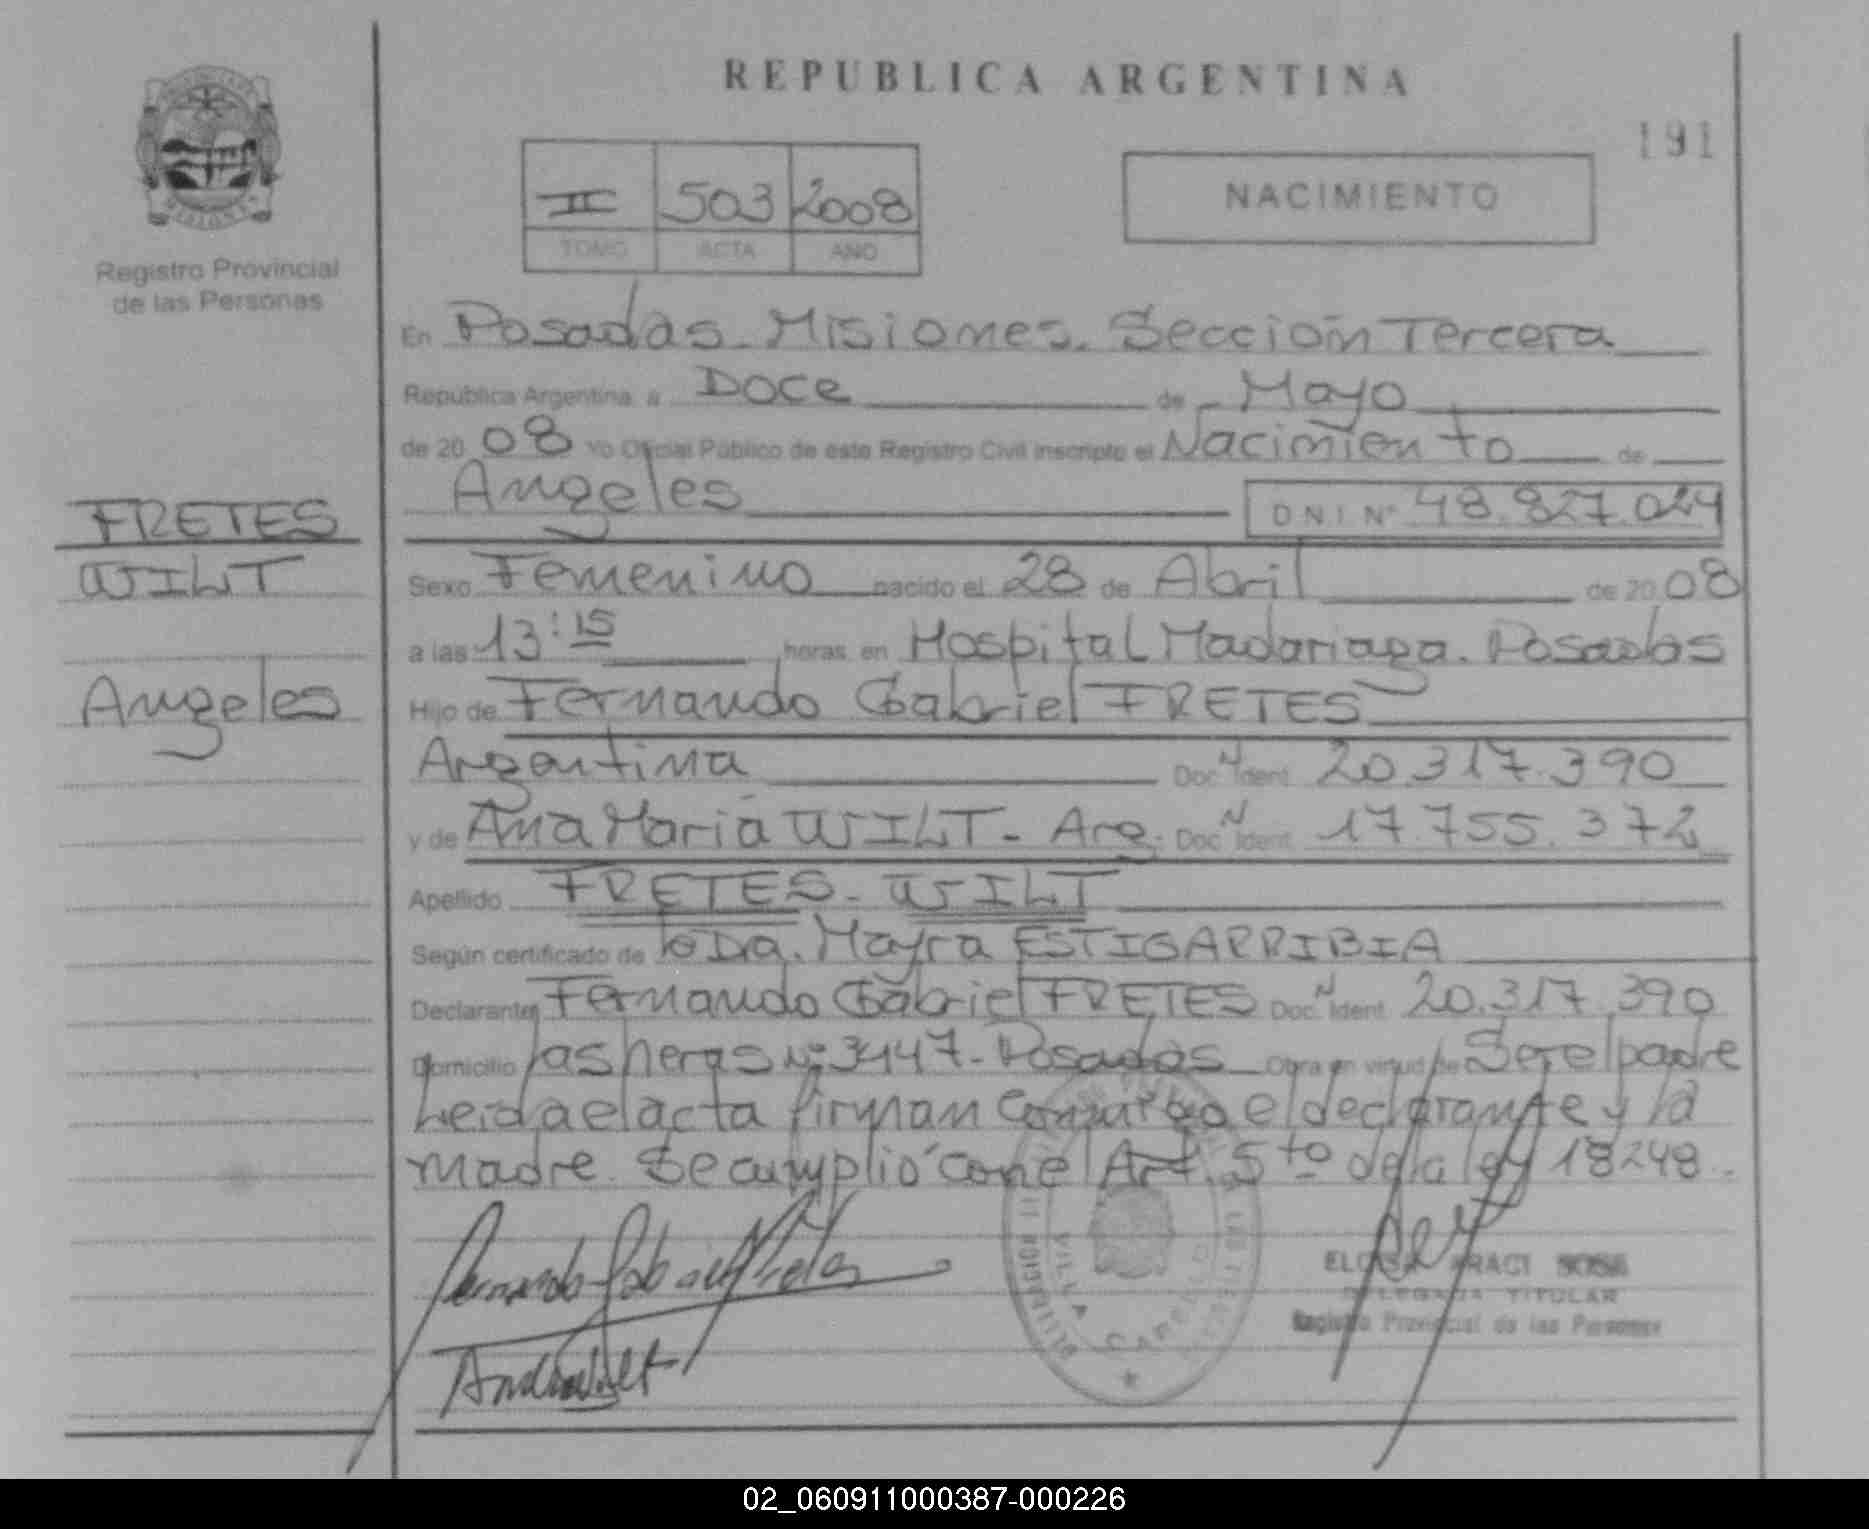 REPUBLICA ARGENTINA
191
II 503 2008
TOMO ACTA AÑO
NACIMIENTO
Registro Provincial
de las Personas
En Posadas. Misiones. Sección Tercera
República Argentina a Doce de Mayo
de 2008 Yo Oficial Público de este Registro Civil inscripto el Nacimiento de
Angeles DNI Nº 48.827.024
FRETES
WILT
Angeles
Sexo Femenino nacido el 28 de Abril de 2008
a las 13:15 horas en Hospital Madariaga. Posadas
Hijo de Fernando Gabriel FRETES
Argentina Doc. N Ident. 20.317.390
y de Ana María WILT - Arg. Doc. N Ident. 17.755.372
Apellido FRETES - WILT
Según certificado de Dra. Mayra ESTIGARRIBIA
Declarante Fernando Gabriel FRETES Doc. N Ident. 20.317.390
Domicilio las heras Nº 3447 - Posadas Obra en virtud de Ser el padre
Leida el acta firman conmigo el declarante y la
madre. Se cumplió con el Art. 5to de la ley 18248.
Fernando Gabriel Fretes
ARACI SOSA
DELEGADA TITULAR
Registro Provincial de las Personas
VILLA CABELLO
02_060911000387-000226